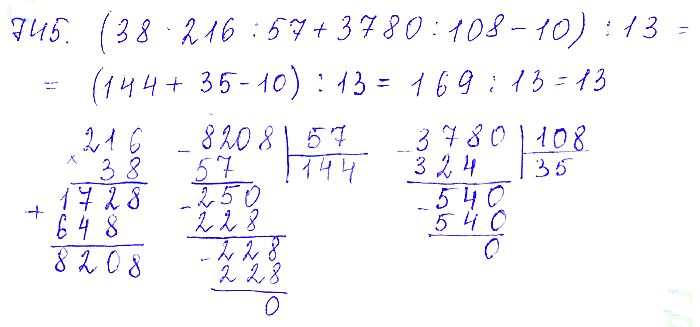 745. (38 · 216 : 57 + 3780 : 108 - 10) : 13 =
= (144 + 35 - 10) : 13 = 169 : 13 = 13
216
× 38
+ 1728
648
8208
- 8208 | 57
57 | 144
- 250
228
- 228
228
0
- 3780 | 108
324 | 35
- 540
540
0